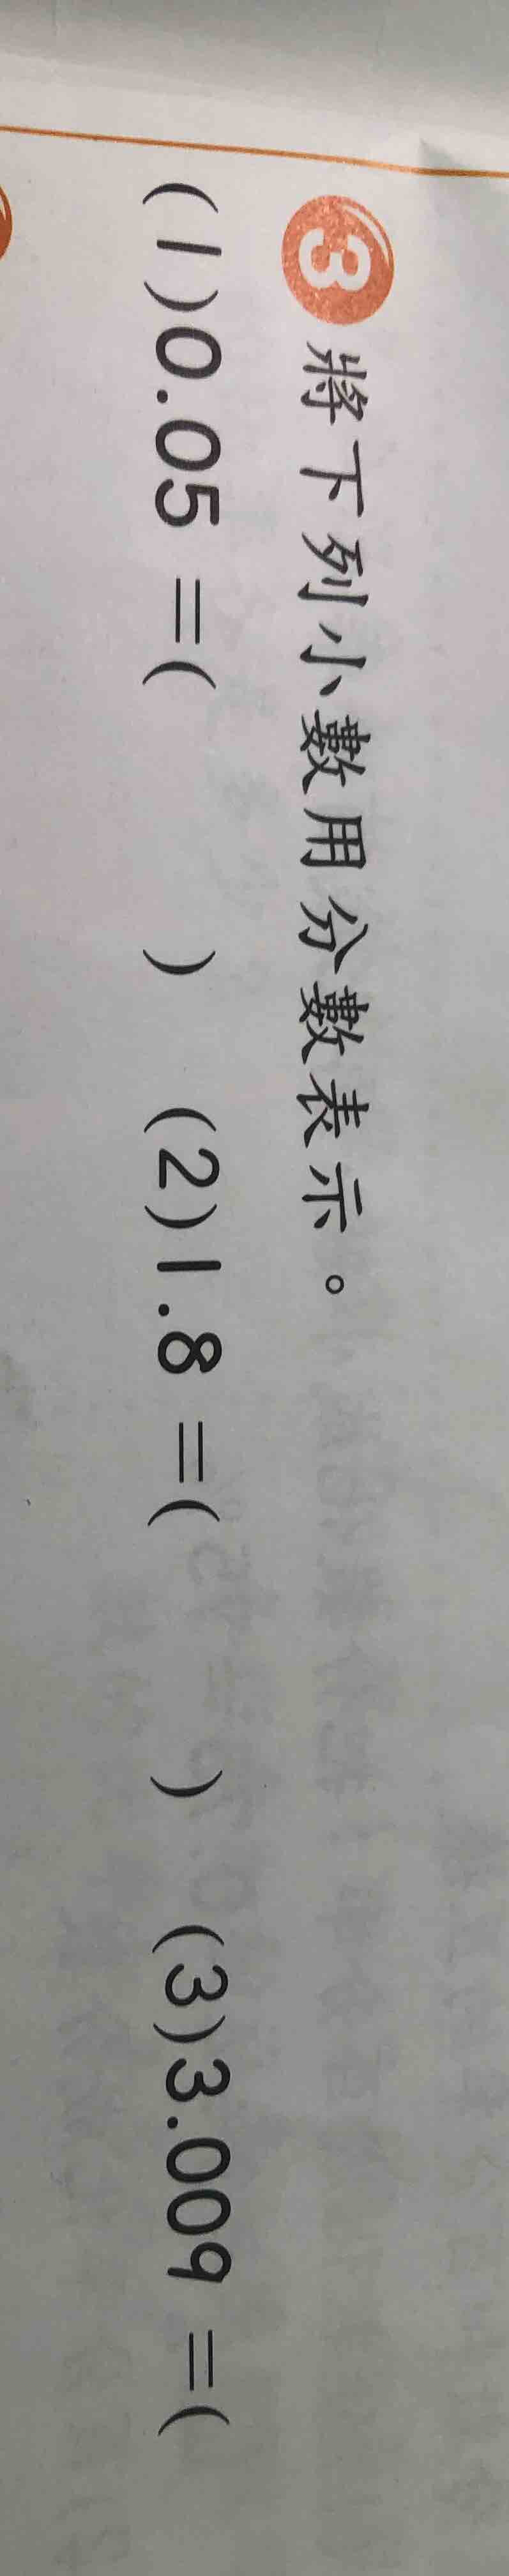 3 將下列小數用分數表示。
(1)0.05 =(          ) (2)1.8 =(          ) (3)3.009 =(